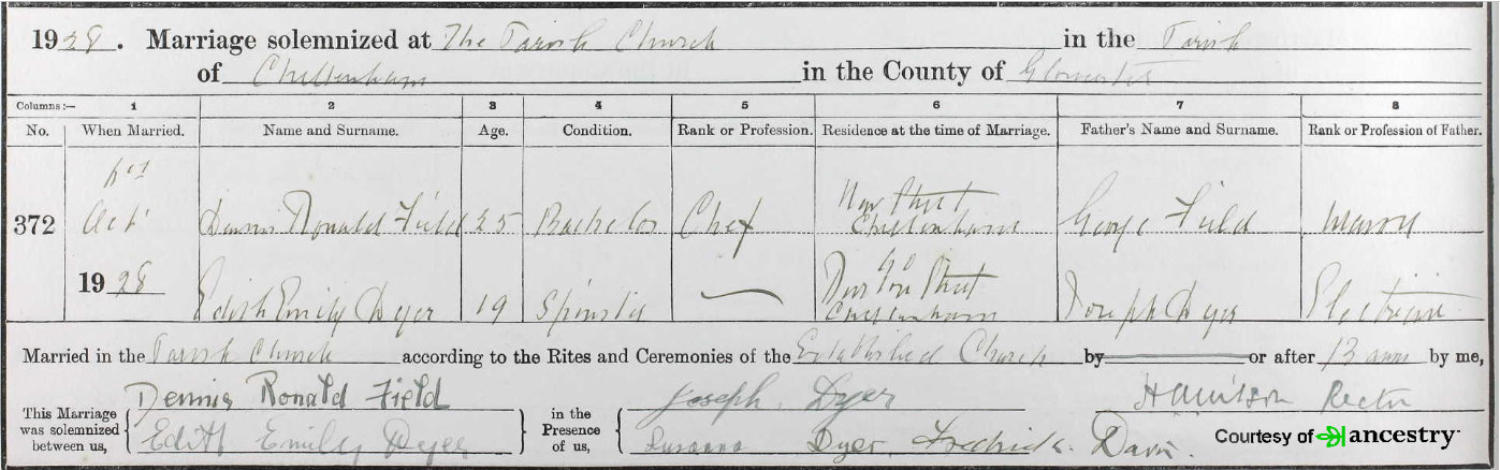 1928. Marriage solemnized at The Parish Church in the Parish
of Cheltenham in the County of Gloucester
Columns:— 1 2 3 4 5 6 7 8
No. When Married. Name and Surname. Age. Condition. Rank or Profession. Residence at the time of Marriage. Father's Name and Surname. Rank or Profession of Father.
372 Oct 1928
Dennis Ronald Field 25 Bachelor Chef New Street Cheltenham George Field Mason
Edith Emily Dyer 19 Spinster — Street Cheltenham Joseph Dyer Electrician
Married in the Parish Church according to the Rites and Ceremonies of the Established Church by or after Banns by me,
This Marriage was solemnized between us,
Dennis Ronald Field
Edith Emily Dyer
in the Presence of us,
Joseph Dyer
Susanna Dyer Fredrick Davis.
Rector
Courtesy of ancestry